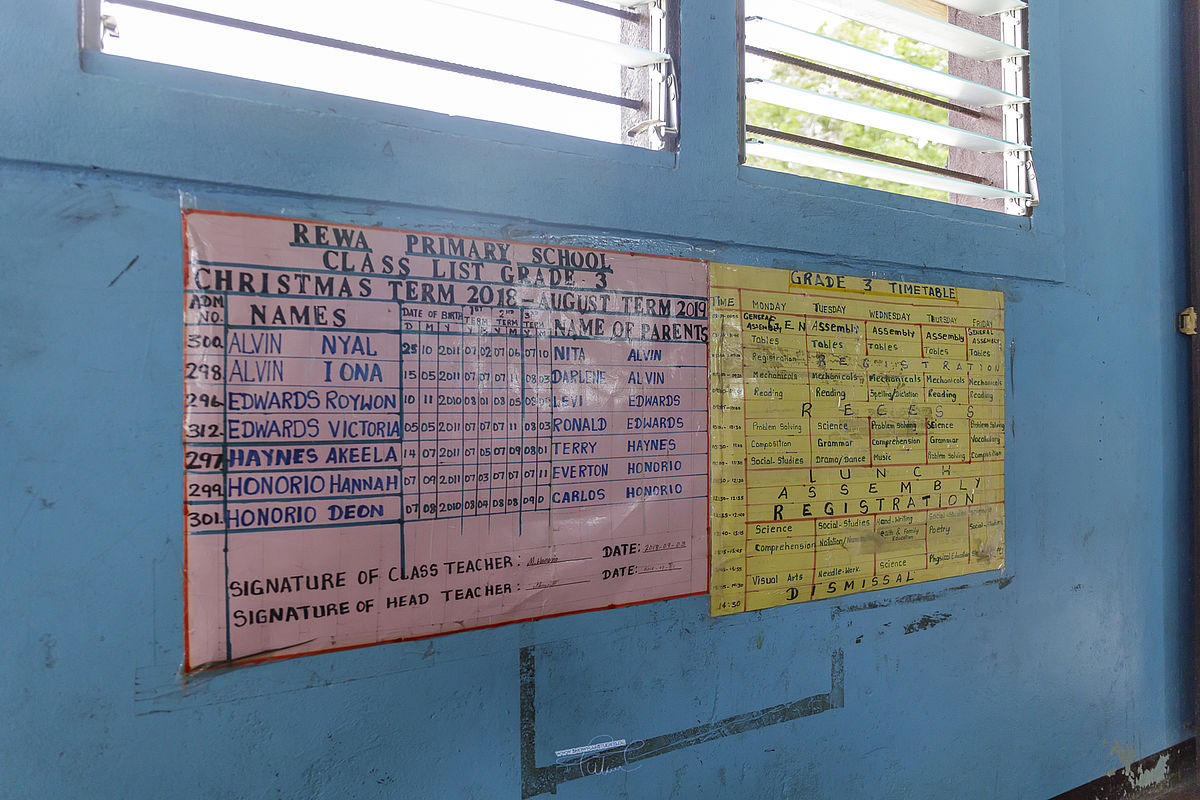 REWA PRIMARY SCHOOL
CLASS LIST GRADE 3
CHRISTMAS TERM 2018 - AUGUST TERM 2019
ADM NO. NAMES DATE OF BIRTH 1ST TERM 2ND TERM 3RD TERM NAME OF PARENTS
D M Y
300. ALVIN NYAL 25 10 2011 07 02 07 06 07 10 NITA ALVIN
298. ALVIN IONA 15 05 2011 07 07 07 11 08 03 DARLENE ALVIN
296. EDWARDS ROYWON 10 11 2010 08 01 08 05 EDWARDS
312. EDWARDS VICTORIA 05 05 2011 07 07 07 11 08 03 RONALD EDWARDS
297. HAYNES AKEELA 14 07 2011 07 05 07 09 08 01 TERRY HAYNES
299. HONORIO HANNAH 07 09 2011 07 03 07 07 07 11 EVERTON HONORIO
301. HONORIO DEON 07 08 2010 08 04 08 08 CARLOS HONORIO
SIGNATURE OF CLASS TEACHER: DATE:
SIGNATURE OF HEAD TEACHER: DATE:
GRADE 3 TIMETABLE
TIME MONDAY TUESDAY WEDNESDAY THURSDAY FRIDAY
GENERAL ASSEMBLY Assembly Assembly Assembly GENERAL ASSEMBLY
Tables Tables Tables Tables Tables
Registration REGISTRATION
Mechanicals Mechanicals Mechanicals Mechanicals Mechanicals
Reading Reading Spelling/Dictation Reading Reading
RECESS
Problem Solving Science Problem Solving Science Problem Solving
Composition Grammar Comprehension Grammar Vocabulary
Social-Studies Drama/Dance Music Problem Solving Composition
LUNCH
ASSEMBLY
REGISTRATION
Science Social-Studies Hand-Writing
Comprehension Health & Family Education Poetry
Science Physical Education
Visual Arts Needle-Work
14:30 DISMISSAL